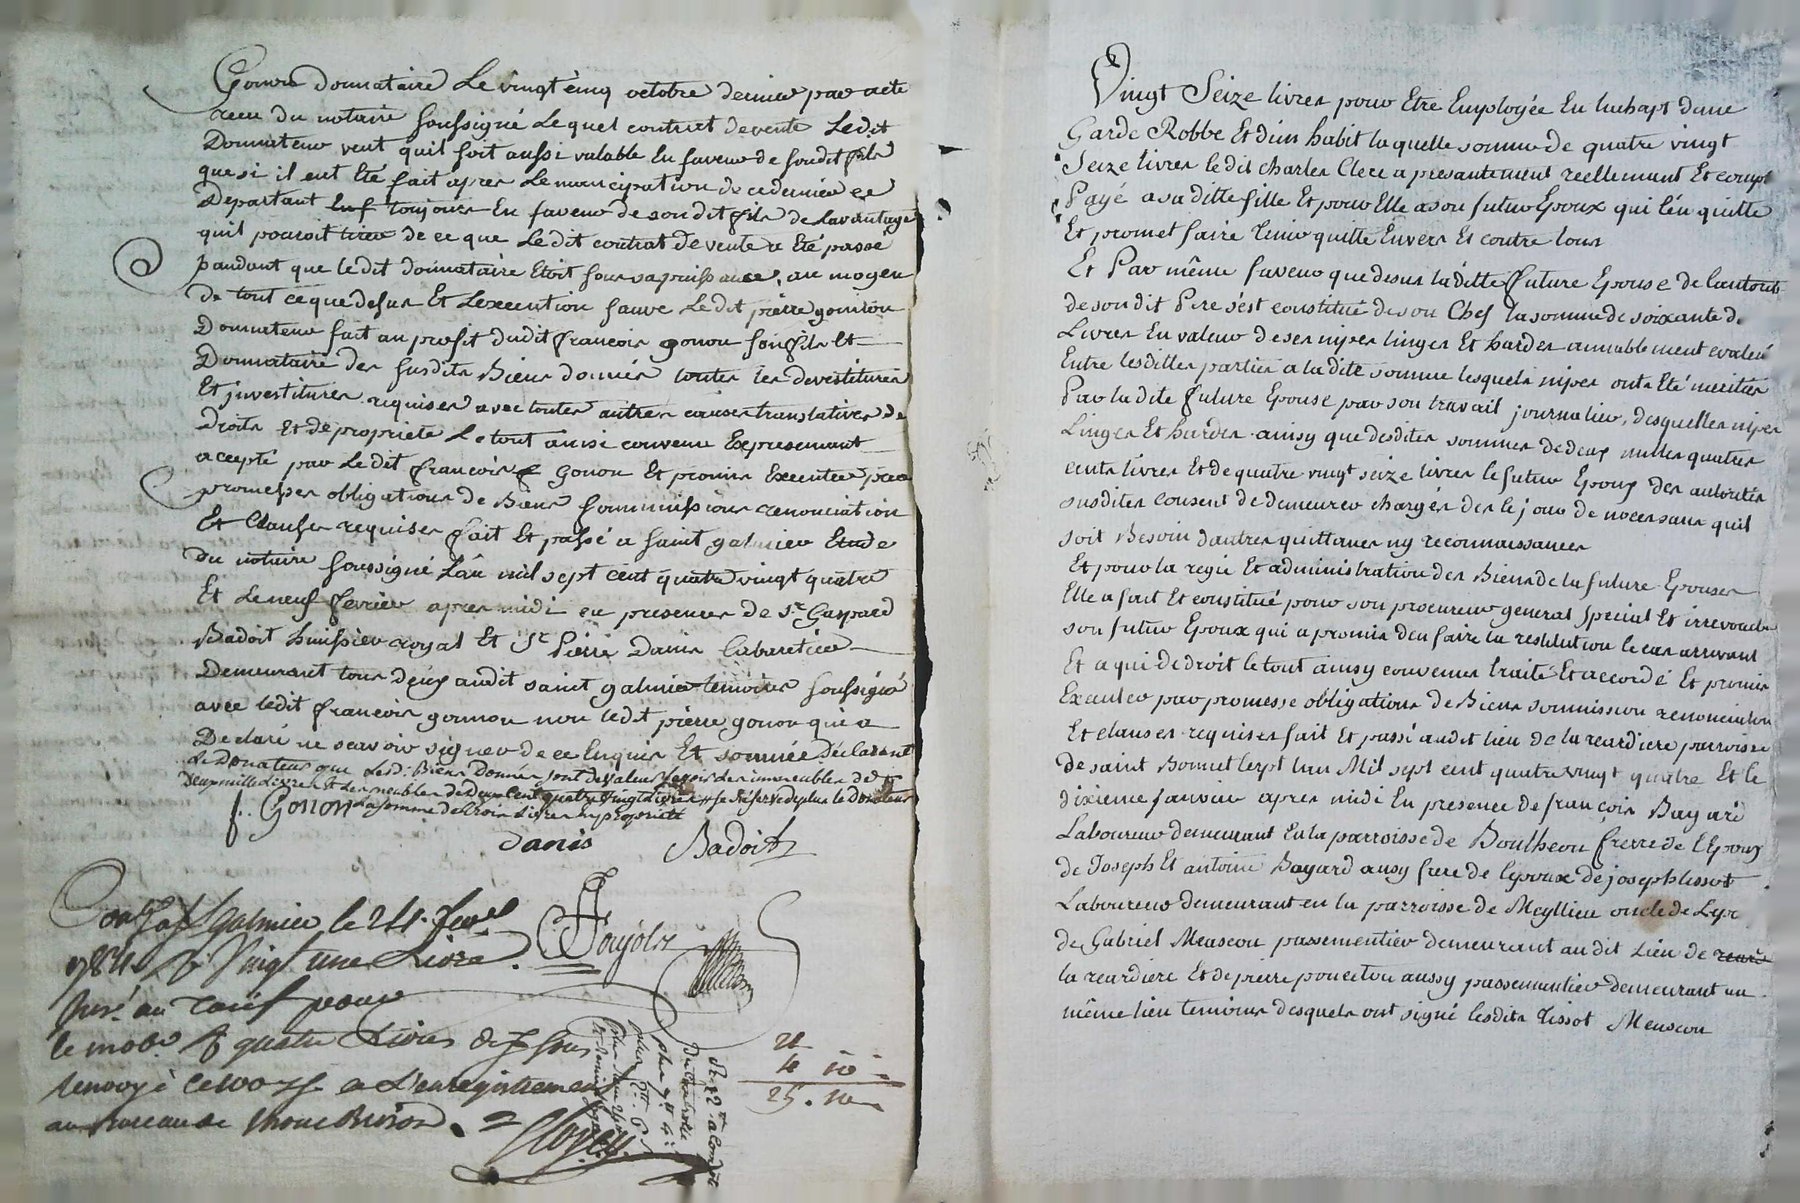 Gonon donnataire Le vingt cinq octobre dernier par acte
recu du notaire soussigné Lequel contract de vente Ledit
Donnateur veut quil soit aussi valable En faveur de sondit fils
que si il eut Eté fait apres Lemancipation de ce dernier se
Departant toujours En faveur de son dit fils de Lavantage
quil pouroit tirer de ce que Le dit contrat de vente a Eté passé
pandant que le dit donnataire Etoit sous sa puissance, au moyen
de tout ce que desus Et Lexecution sauve Le dit pierre gonon
Donnateur fait au profit dudit francois gonon son fils Et
Donnataire des susdits Biens donnés toutes les devestitures
Et jnvestitures requises avec toutes autres causes translatives de
droits Et de propriete Le tout ainsi convenu Expressement
accepté par Le dit francois gonon Et promis Executer par
promesses obligations de Biens soummissions renonciation
Et Clauses requises fait Et passé a saint galmier Etude
du notaire soussigné Lan mil sept cent quatre vingt quatre
Et Le neuf fevrier apres midi en presences de Sr. Gaspard
Badoit huissier royal Et Sr. Pierre Danis Cabaretier
Demeurant tous deux audit saint galmier temoins soussigné
avec ledit francois gonnon non ledit pierre gonon qui a
Declaré ne scavoir signer de ce Enquis Et sommé Déclarant
Le Donateur que Lesd. Biens Donnés sont de valeur scavoir les immeubles de
Deux mille Livres Et les meubles de Deux Cent quatre vingt Livres se Reserve de plus le Donateur
La somme de trois Livres en propriété
f. Gonon
Danis Badoit
Pajolz
Conthe a St galmier le 24. fevr
1784 R Vingt une Livre
suv. au Tarif pour
le mob. R quatre Livres dix sous
renvoyé a L'enregistrement
au Bureau de Montbrison.
21
4 10
25. 10
Vingt Seize livres pour Etre Employée En luchapt dune
Garde Robbe Et dun habit la quelle somme de quatre vingt
Seize livres le dit charles Clerc a presantement reellement Et compt
Payé a sa ditte fille Et pour Elle a son futur Epoux qui l'en quitte
Et promet faire tenir quitte Envers Et contre tous
Et Par même faveur que desus la ditte future Epouse de lautorité
de son dit Pere s'est constitué de son Chef la somme de soixante d.
Livres En valeur de ses nipes linges Et hardes amiablement evalué
Entre lesdittes parties a la dite somme lesquels nipes onts Eté merités
Par la dite future Epouse par son travail journalier, desquelles nipes
Linges Et hardes ainsy que desdites sommes de deux milles quatres
cents livres Et de quatre vingt seize livres le futur Epoux des autorités
susdites consent de demeurer chargés des le jour de noces sans quil
soit Besoin dautres quittances ny reconnaissances
Et pour la regie Et administration des Biens de la future Epouse
Elle a fait Et constitué pour son procureur general special Et irrevocable
son futur Epoux qui a promis den faire la restitution le cas arrivant
Et a qui de droit le tout ainsy convenus traité Et accordé Et promis
Executer par promesse obligations de Biens sommission renonciation
Et clauses requises fait Et passé audit lieu de la reardiere parroisse
de saint Bonnet lan Mil sept cent quatre vingt quatre Et le
dixieme janvier apres midi En presence de françois Bayard
Laboureur demeurant En la parroisse de Boutheon frerre de l'Epoux
de Joseph Et antoine Bayard ausy frere de lepoux de joseph tissot
Laboureur demeurant en la parroisse de Meyllieu oncle de
de Gabriel Meuscou passementier demeurant au dit Lieu de
la reardiere Et de pierre ponceton aussy passementier demeurant au
même lieu temoins desquels ont signé lesdits tissot Meuscou